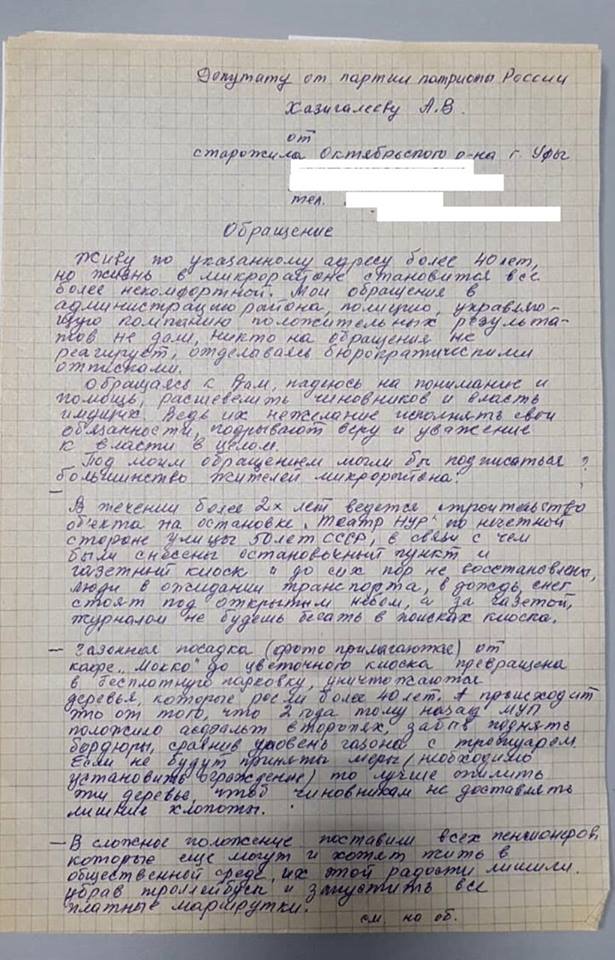 Депутату от партии патриоты России
Хазигалееву А.В.
от
старожила Октябрьского р-на г. Уфы
тел.
Обращение
Живу по указанному адресу более 40 лет,
но жизнь в микрорайоне становится все
более некомфортной. Мои обращения в
администрацию района, полицию, управляю-
щую компанию положительных результа-
тов не дали, никто на обращения не
реагирует, отделываясь бюрократическими
отписками.
Обращаясь к Вам, надеюсь на понимание и
помощь, расшевелить чиновников и власть
имущих. Ведь их нежелание исполнять свои
обязанности, подрывают веру и уважение
к власти в целом.
Под моим обращением могли бы подписаться
большинство жителей микрорайона. ?
–
В течении более 2х лет ведется строительство
объекта на остановке "Театр НУР" по нечетной
стороне улицы 50 лет СССР, в связи с чем
были снесены остановочный пункт и
газетный киоск и до сих пор не восстановлены,
люди в ожидании транспорта, в дождь, снег
стоят под открытым небом, а за газетой,
журналом не будешь бегать в поисках киоска.
– Газонная посадка (фото прилагаются) от
кафе "Мокко" до цветочного киоска превращена
в бесплатную парковку, уничтожаются
деревья, которые росли более 40 лет. А происходит
это от того, что 2 года тому назад МУП
положило асфальт впопыхах, забыв поднять
бордюры, сравнив уровень газона с тротуаром.
Если не будут приняты меры (необходимо
установить ограждение) то лучше спилить
эти деревья, чтоб чиновникам не доставлять
лишние хлопоты.
– В сложное положение поставили всех пенсионеров,
которые еще могут и хотят жить в
общественной среде, их этой радости лишили
убрав троллейбусы и запустить все
платные маршрутки.
см. на об.